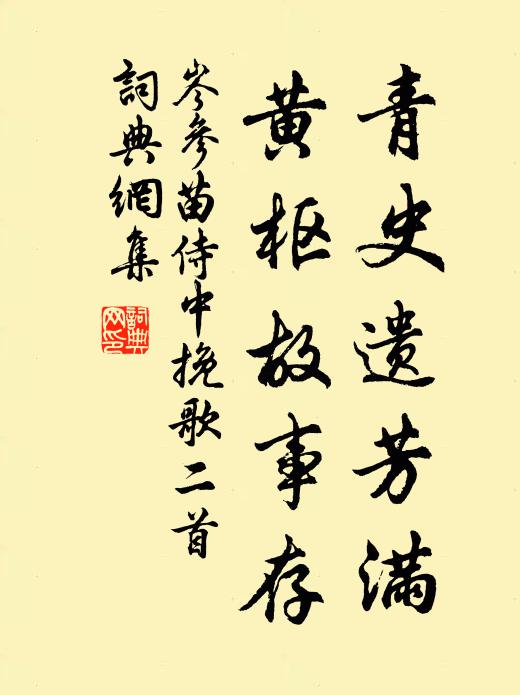 青史遗芳满
黄枢故事存
岑參苗侍中挽歌二首
詞典網集
詞典网印